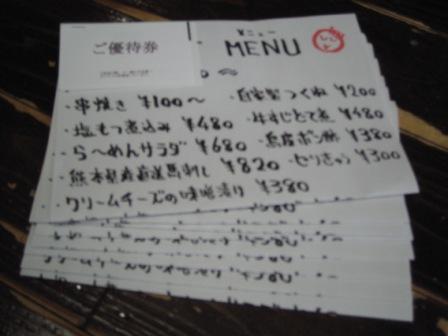 ご優待券
メニュー
MENU
・串焼き ¥100〜
・自家製つくね ¥200
・塩もつ煮込み ¥480
・牛すじとて煮 ¥480
・らーめんサラダ ¥680
・鳥皮ポン酢 ¥380
・熊本県産直送馬刺し ¥820
・ピリきゅう ¥300
・クリームチーズの味噌漬け ¥380